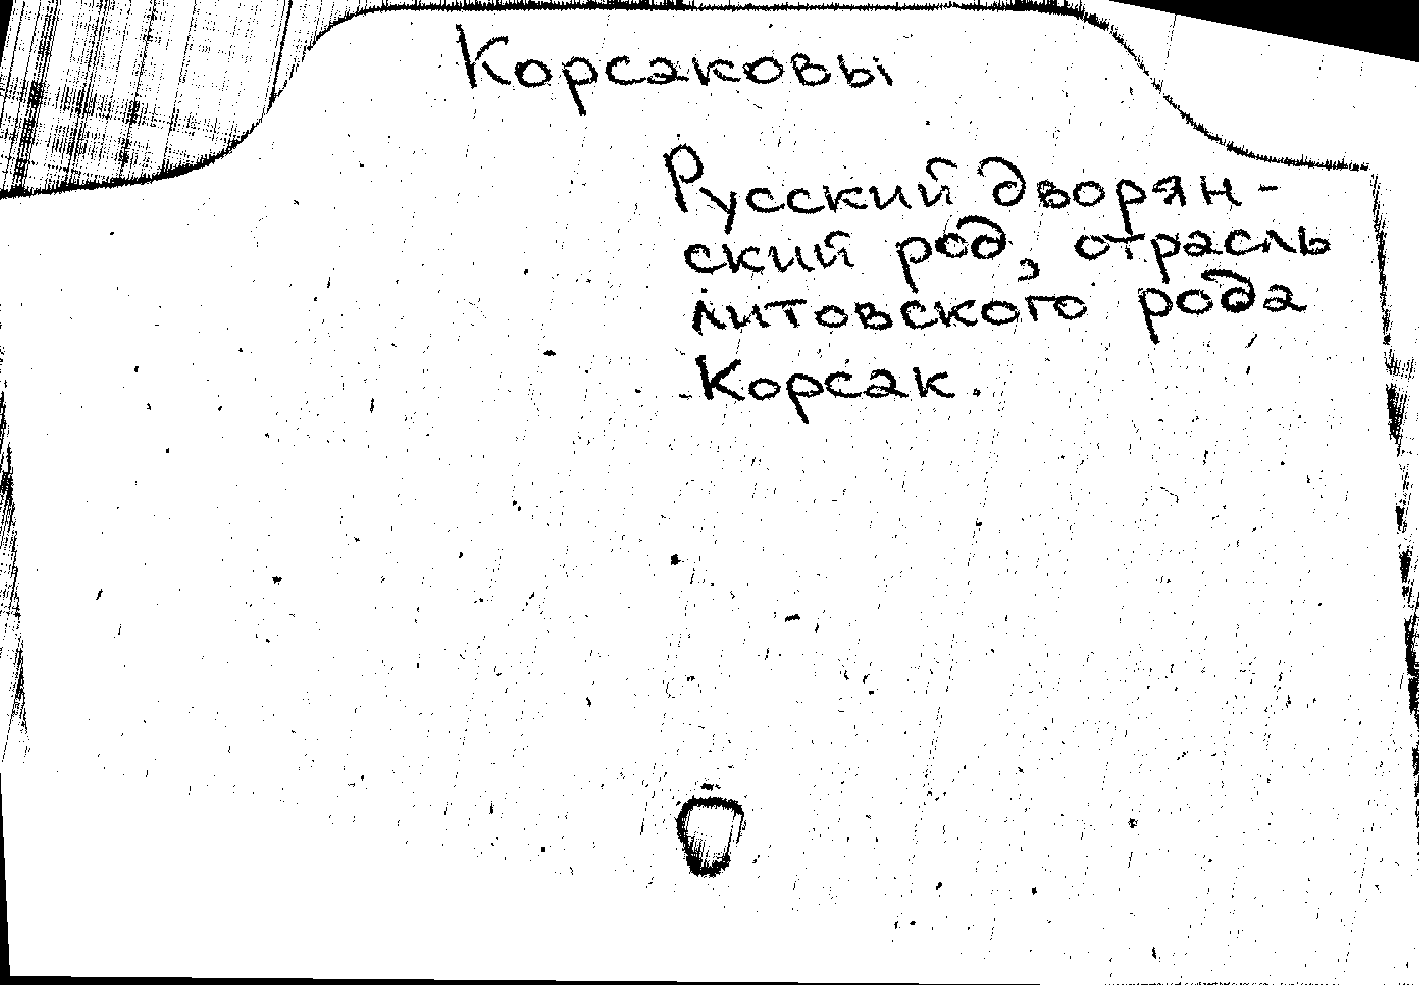 Корсаковы
Русский дворян-
ский род, отрасль
литовского рода
Корсак.